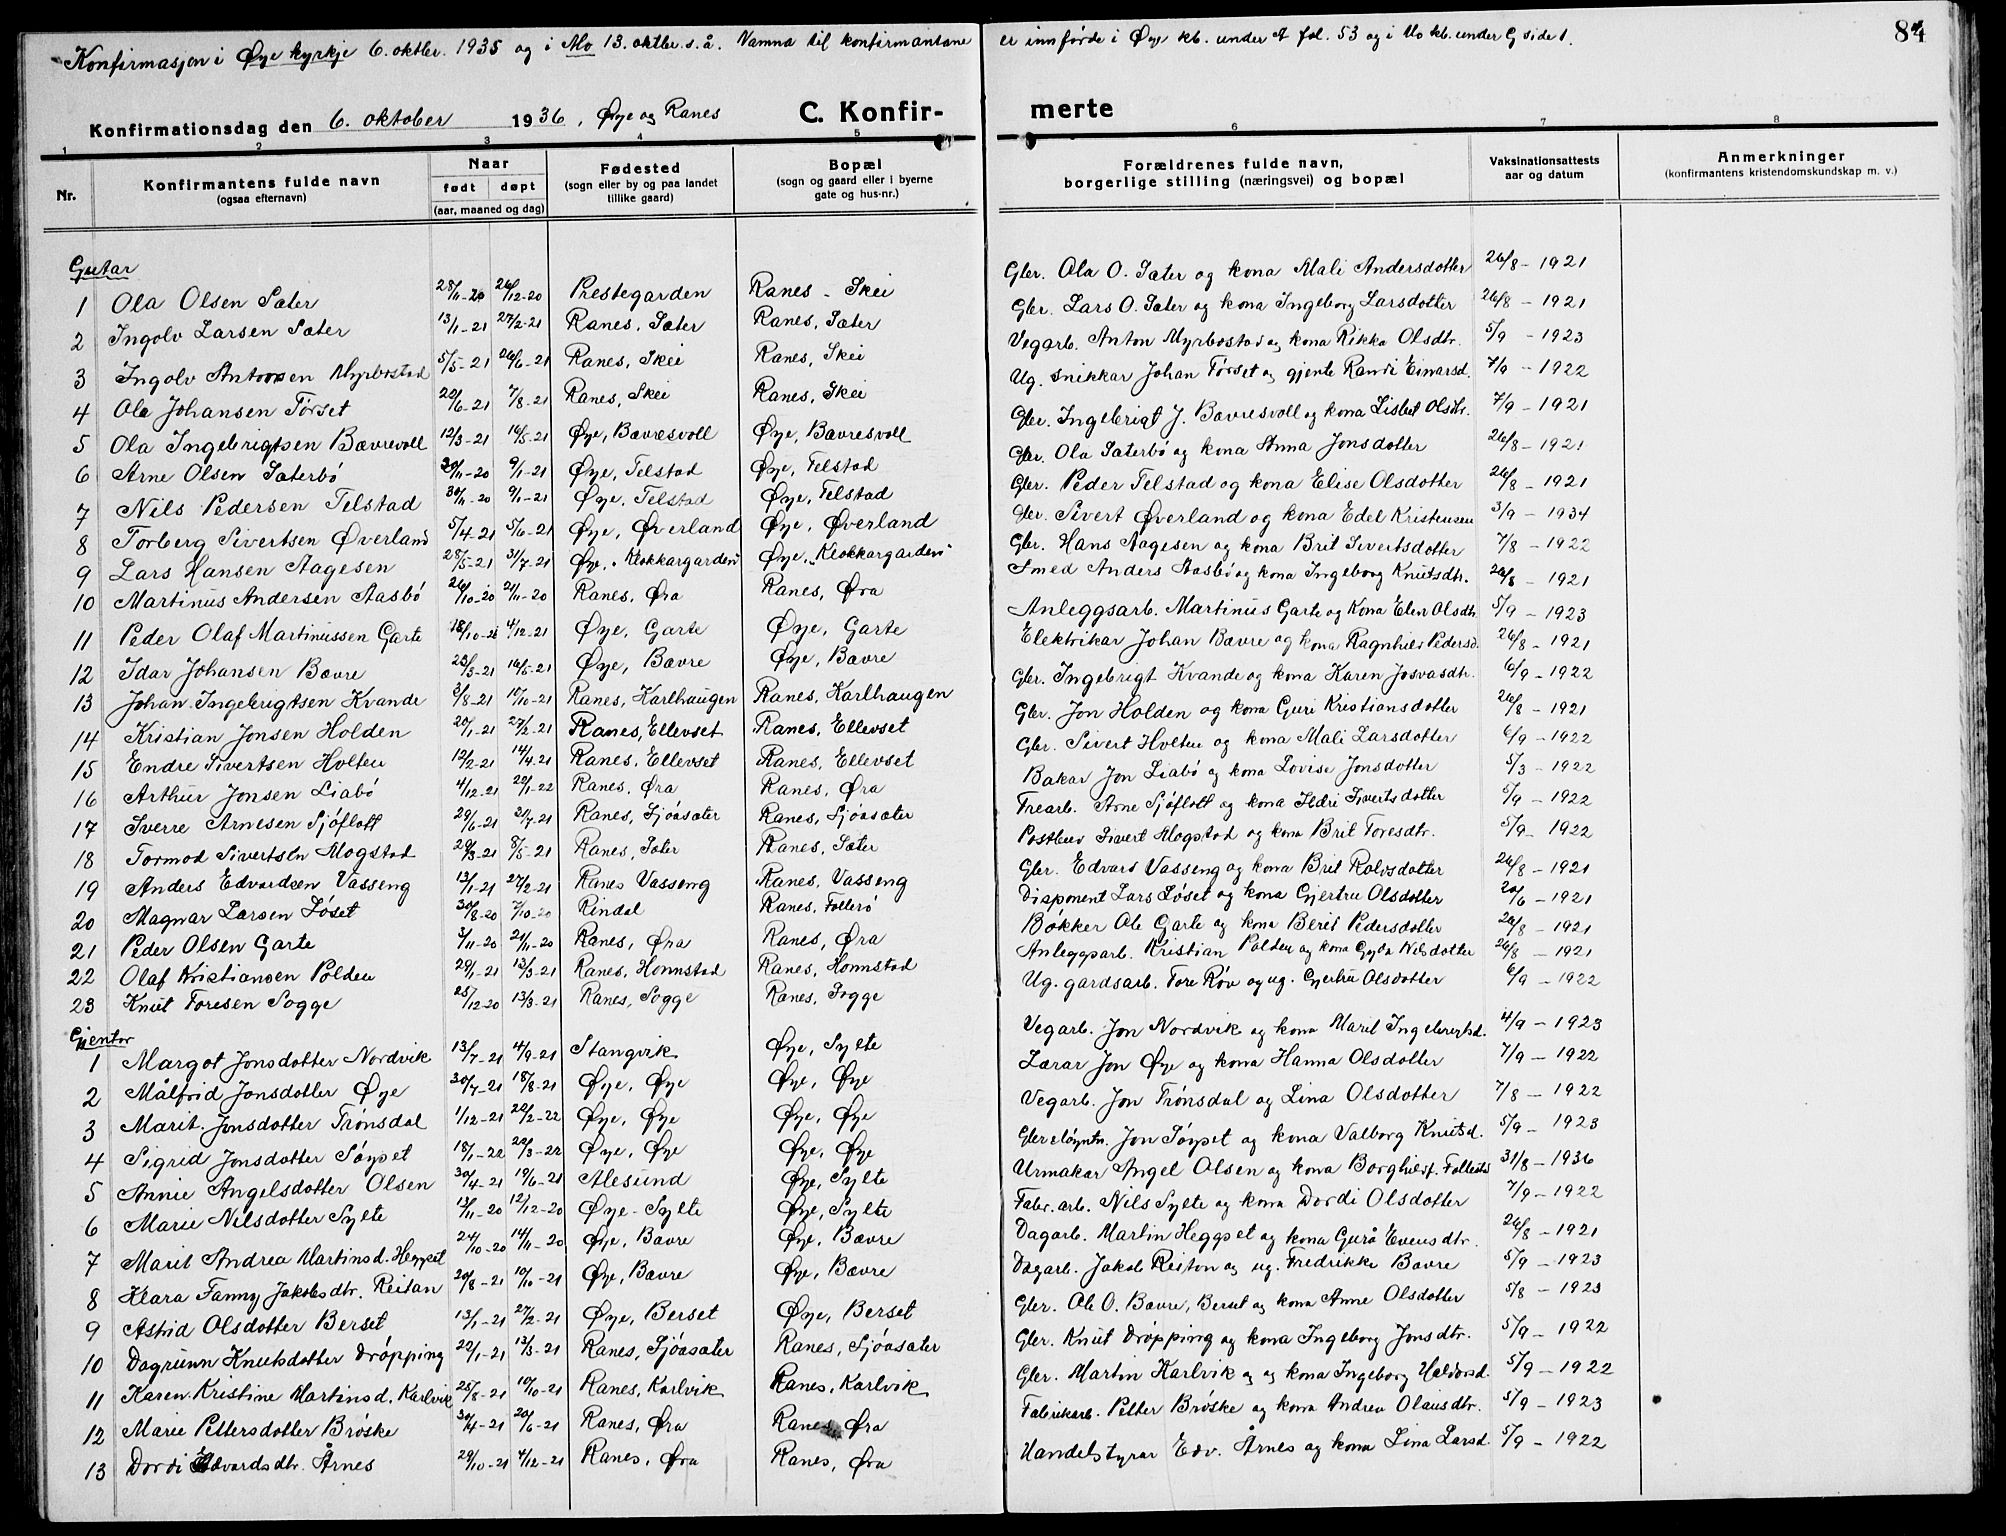 Konfirmasjon i Øye kyrkje 6. oktbr. 1935 og i Mo 13. oktbr. s.å. Namna til konfirmantane er innførde i Øye kb. under A fol. 53 og i Mo kb. under G side 1.
84
Konfirmationsdag den 6. oktober 1936, Øye og Ranes C. Konfirmerte
1 2 3 4 5 6 7 8
Nr. Konfirmantens fulde navn (ogsaa efternavn) Naar født døpt (aar, maaned og dag) Fødested (sogn eller by og paa landet tillike gaard) Bopæl (sogn og gaard eller i byerne gate og hus-nr.) Forældrenes fulde navn, borgerlige stilling (næringsvei) og bopæl Vaksinationsattests aar og datum Anmerkninger (konfirmantens kristendomskundskap m. v.)
Gutar
1 Ola Olsen Sæter 28/11-20 26/12-20 Prestegarden Ranes - Skei Gbr. Ola O. Sæter og kona Mali Andersdotter 26/8 - 1921
2 Ingolv Larsen Sæter 13/1-21 27/2-21 Ranes, Sæter Ranes, Sæter Gbr. Lars O. Sæter og kona Ingeborg Larsdotter 26/8 - 1921
3 Ingolv Antonsen Myrbostad 5/5-21 26/6-21 Ranes, Skei Ranes, Skei Vegarb. Anton Myrbostad og kona Rikka Olsdtr. 5/9 - 1923
4 Ola Johansen Tørset 20/6-21 7/8-21 Ranes, Skei Ranes, Skei Ug. snikkar Johan Tørset og gjente Randi Einarsd. 7/9 - 1922
5 Ola Ingebrigtsen Bævrevoll 12/3-21 16/5-21 Øye, Bævresvoll Øye, Bævresvoll Gbr. Ingebrigt J. Bævresvoll og kona Lisbet Olsdtr. 7/9 - 1921
6 Arne Olsen Sæterbø 20/11-20 9/1-21 Øye, Telstad Øye, Telstad Gbr. Ola Sæterbø og kona Anna Jonsdotter 26/8 - 1921
7 Nils Pedersen Telstad 30/11-20 9/1-21 Øye, Telstad Øye, Telstad Gbr. Peder Telstad og kona Elise Olsdotter 26/8 - 1921
8 Torberg Sivertsen Øverland 5/4-21 5/6-21 Øye, Øverland Øye, Øverland Gbr. Sivert Øverland og kona Edel Kristensen 3/9 - 1934
9 Lars Hansen Aagesen 28/5-21 31/7-21 Øye, "Klokkargarden" Øye, "Klokkargarden" Gbr. Hans Aagesen og kona Brit Sivertsdotter 7/8 - 1922
10 Martinus Andersen Aasbø 26/10-20 21/11-20 Ranes, Øra Ranes, Øra Smed Anders Aasbø og kona Ingeborg Knutsdtr. 26/8 - 1921
11 Peder Olaf Martinussen Garte 18/10-21 4/12-21 Øye, Garte Øye, Garte Anleggsarb. Martinus Garte og Kona Elen Olsdtr. 5/9 - 1923
12 Idar Johansen Bævre 23/3-21 16/5-21 Øye, Bævre Øye, Bævre Elektrikar Johan Bævre og kona Ragnhild Pedersd. 26/8 - 1921
13 Johan Ingebrigtsen Kvande 3/8-21 10/10-21 Ranes, Karlhaugen Ranes, Karlhaugen Gbr. Ingebrigt Kvande og kona Karen Josvasdtr. 6/9 - 1922
14 Kristian Jonsen Holden 20/1-21 27/2-21 Ranes, Ellevset Ranes, Ellevset Gbr. Jon Holden og kona Guri Kristiansdotter 26/8 - 1921
15 Endre Sivertsen Holten 12/2-21 14/4-21 Ranes, Ellevset Ranes, Ellevset Gbr. Sivert Holten og kona Mali Larsdotter 6/9 - 1922
16 Arthur Jonsen Liabø 4/12-21 29/1-22 Ranes, Øra Ranes, Øra Bakar Jon Liabø og kona Lovise Jonsdotter 5/3 - 1922
17 Sverre Arnesen Sjøflott 29/6-21 31/7-21 Ranes, Sjøasæter Ranes, Sjøasæter Trearb. Arne Sjøflott og kona Ildri Sivertsdotter 5/9 - 1922
18 Tormod Sivertsen Mogstad 29/3-21 8/5-21 Ranes, Sæter Ranes, Sæter Postbud Sivert Mogstad og kona Brit Toresdtr. 5/9 - 1922
19 Anders Edvardsen Vasseng 13/1-21 27/2-21 Ranes Vasseng Ranes, Vasseng Gbr. Edvard Vasseng og kona Brit Rolvsdotter 26/8 - 1921
20 Magnar Larsen Løset 30/8-20 7/10-20 Rindal Ranes, Follerø Disponent Lars Løset og kona Gjertru Olsdotter 20/6 - 1921
21 Peder Olsen Garte 3/11-20 21/11-20 Ranes, Øra Ranes, Øra Bøkker Ole Garte og kona Berit Pedersdotter 26/8 - 1921
22 Olaf Kristiansen Polden 29/1-21 13/3-21 Ranes, Honnstad Ranes, Honnstad Anleggsarb. Kristian Polden og kona Gyda Nilsdotter 26/8 - 1921
23 Knut Toresen Sogge 25/12-20 13/3-21 Ranes, Sogge Ranes, Sogge Ug. gardsarb. Tore Røv og ug. Gjertru Olsdotter 6/9 - 1922
Gjentor
1 Margot Jonsdotter Nordvik 13/7-21 4/9-21 Stangvik Øye, Sylte Vegarb. Jon Nordvik og kona Marit Ingebrigtsd. 4/9 - 1923
2 Målfrid Jonsdotter Øye 30/7-21 18/8-21 Øye, Øye Øye, Øye Lærar Jon Øye og kona Hanna Olsdotter 7/9 - 1922
3 Marit Jonsdotter Trønsdal 1/12-21 20/2-22 Øye, Øye Øye, Øye Vegarb. Jon Trønsdal og Lina Olsdotter 7/8 - 1922
4 Sigrid Jonsdotter Søyset 18/1-22 20/3-22 Øye, Øye Øye, Øye Jon Søyset og kona Valborg Knutsd. 5/9 - 1923
5 Annie Angelsdotter Olsen 30/4-21 19/6-21 Alesund Øye, Sylte Urmakar Angel Olsen og kona Borghild f. Follestd 31/8 - 1936
6 Marie Nilsdotter Sylte 13/11-20 12/12-20 Øye - Sylte Øye, Sylte Fabr. arb. Nils Sylte og kona Dordi Olsdotter 7/9 - 1922
7 Marit Andrea Martinsd. Heggset 24/10-20 14/11-20 Øye, Bævre Øye, Bævre Dagarb. Martin Heggset og kona Gurå Evensdtr. 26/8 - 1921
8 Klara Fanny Jakobsdtr. Reitan 20/8-21 10/10-21 Øye, Bævre Øye, Bævre Dagarb. Jakob Reitan og ug. Fredrikke Bævre 5/9 - 1923
9 Astrid Olsdotter Berset 13/1-21 27/2-21 Øye, Berset Øye, Berset Gbr. Ole O. Bævre, Berset og kona Anne Olsdotter 5/8 - 1923
10 Dagrunn Knutsdotter Drøpping 22/1-21 13/3-21 Ranes, Sjøasæter Ranes, Sjøasæter Gbr. Knut Drøpping og kona Ingeborg Jonsdtr. 5/9 - 1922
11 Karen Kristine Martinsd. Karlvik 25/8-21 10/10-21 Ranes, Karlvik Ranes, Karlvik Gbr. Martin Karlvik og og kona Ingeborg Haldorsd. 5/9 - 1922
12 Marie Pettersdotter Brøske 30/4-21 20/6-21 Ranes, Øra Ranes, Øra Fabrikarb. Petter Brøske og kona Andrea Olausdtr. 5/9 - 1923
13 Dordi Edvardsdtr. Årnes 29/10-21 4/12-21 Ranes, Øra Ranes, Øra Handelstyrar Edv. Årnes og kona Lina Larsd. 5/9 - 1922